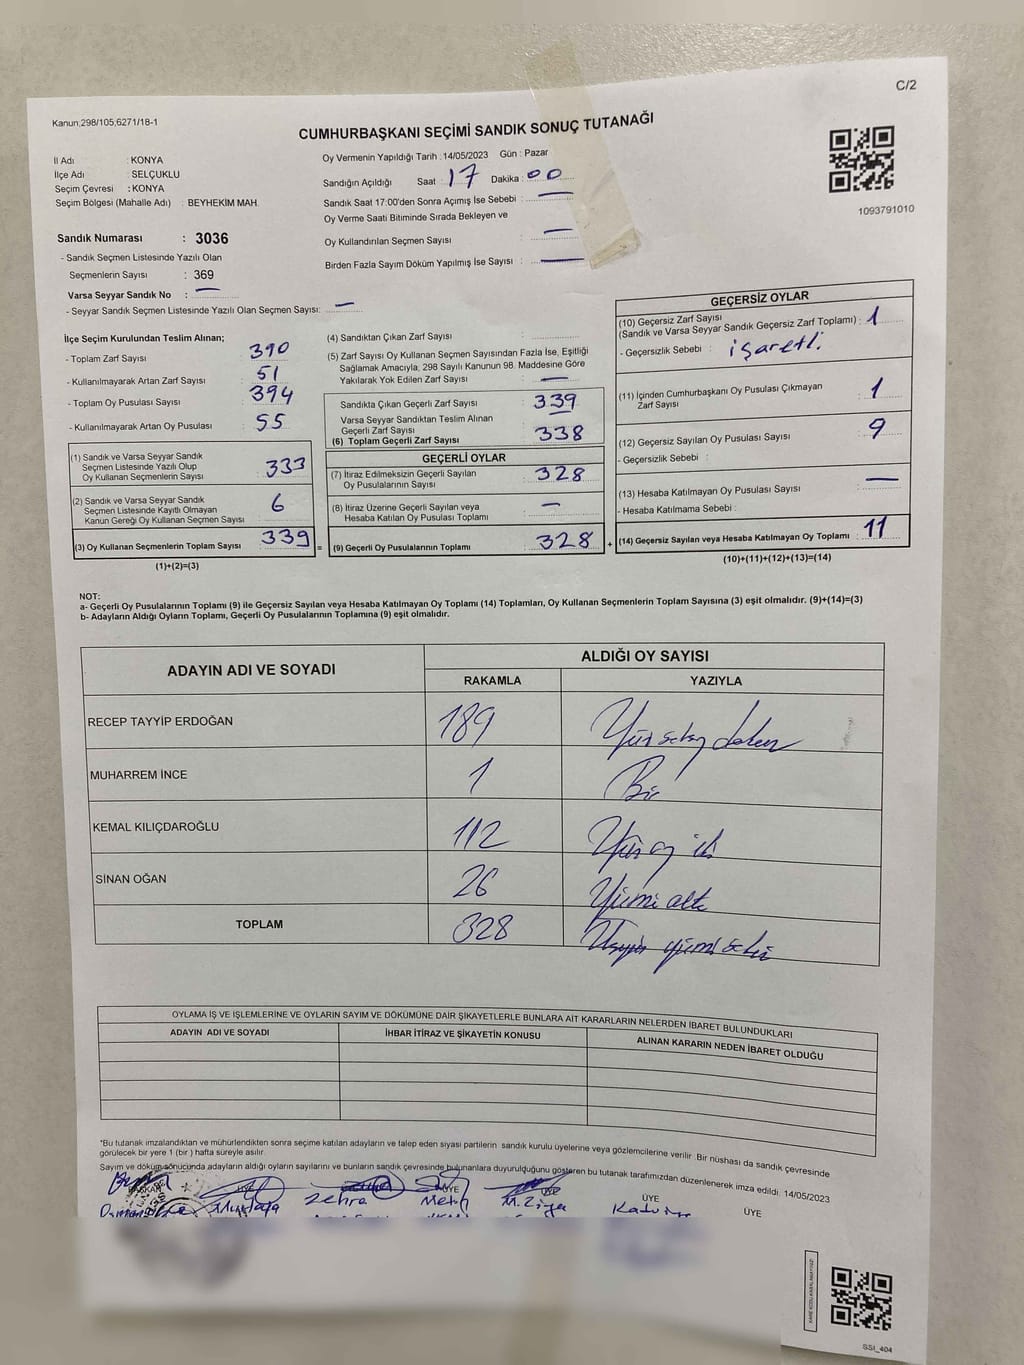 C/2
Kanun,298/105,6271/18-1
CUMHURBAŞKANI SEÇİMİ SANDIK SONUÇ TUTANAĞI
1093791010
İl Adı : KONYA
İlçe Adı : SELÇUKLU
Seçim Çevresi : KONYA
Seçim Bölgesi (Mahalle Adı) : BEYHEKİM MAH.
Sandık Numarası : 3036
- Sandık Seçmen Listesinde Yazılı Olan
Seçmenlerin Sayısı : 369
Varsa Seyyar Sandık No : —
- Seyyar Sandık Seçmen Listesinde Yazılı Olan Seçmen Sayısı: —
Oy Vermenin Yapıldığı Tarih : 14/05/2023 Gün : Pazar
Sandığın Açıldığı Saat : 17 Dakika : 00
Sandık Saat 17:00'den Sonra Açımış İse Sebebi : —
Oy Verme Saati Bitiminde Sırada Bekleyen ve
Oy Kullandırılan Seçmen Sayısı : —
Birden Fazla Sayım Döküm Yapılmış İse Sayısı : —
İlçe Seçim Kurulundan Teslim Alınan;
- Toplam Zarf Sayısı 390
- Kullanılmayarak Artan Zarf Sayısı 51
- Toplam Oy Pusulası Sayısı 394
- Kullanılmayarak Artan Oy Pusulası 55
(1) Sandık ve Varsa Seyyar Sandık
Seçmen Listesinde Yazılı Olup
Oy Kullanan Seçmenlerin Sayısı 333
(2) Sandık ve Varsa Seyyar Sandık
Seçmen Listesinde Kayıtlı Olmayan
Kanun Gereği Oy Kullanan Seçmen Sayısı 6
(3) Oy Kullanan Seçmenlerin Toplam Sayısı 339
(1)+(2)=(3)
=
(4) Sandıktan Çıkan Zarf Sayısı :
(5) Zarf Sayısı Oy Kullanan Seçmen Sayısından Fazla İse, Eşitliği
Sağlamak Amacıyla, 298 Sayılı Kanunun 98. Maddesine Göre
Yakılarak Yok Edilen Zarf Sayısı : —
Sandıkta Çıkan Geçerli Zarf Sayısı : 339
Varsa Seyyar Sandıktan Teslim Alınan
Geçerli Zarf Sayısı
(6) Toplam Geçerli Zarf Sayısı : 338
GEÇERLİ OYLAR
(7) İtiraz Edilmeksizin Geçerli Sayılan
Oy Pusulalarının Sayısı : 328
(8) İtiraz Üzerine Geçerli Sayılan veya
Hesaba Katılan Oy Pusulası Toplamı : —
(9) Geçerli Oy Pusulalarının Toplamı : 328
+
GEÇERSİZ OYLAR
(10) Geçersiz Zarf Sayısı
(Sandık ve Varsa Seyyar Sandık Geçersiz Zarf Toplamı) : 1
- Geçersizlik Sebebi : işaretli
(11) İçinden Cumhurbaşkanı Oy Pusulası Çıkmayan
Zarf Sayısı : 1
(12) Geçersiz Sayılan Oy Pusulası Sayısı : 9
- Geçersizlik Sebebi :
(13) Hesaba Katılmayan Oy Pusulası Sayısı : —
- Hesaba Katılmama Sebebi :
(14) Geçersiz Sayılan veya Hesaba Katılmayan Oy Toplamı : 11
(10)+(11)+(12)+(13)=(14)
NOT:
a- Geçerli Oy Pusulalarının Toplamı (9) ile Geçersiz Sayılan veya Hesaba Katılmayan Oy Toplamı (14) Toplamları, Oy Kullanan Seçmenlerin Toplam Sayısına (3) eşit olmalıdır. (9)+(14)=(3)
b- Adayların Aldığı Oyların Toplamı, Geçerli Oy Pusulalarının Toplamına (9) eşit olmalıdır.
ADAYIN ADI VE SOYADI ALDIĞI OY SAYISI
RAKAMLA YAZIYLA
RECEP TAYYİP ERDOĞAN 189
MUHARREM İNCE 1 Bir
KEMAL KILIÇDAROĞLU 112
SİNAN OĞAN 26
TOPLAM 328
OYLAMA İŞ VE İŞLEMLERİNE VE OYLARIN SAYIM VE DÖKÜMÜNE DAİR ŞİKAYETLERLE BUNLARA AİT KARARLARIN NELERDEN İBARET BULUNDUKLARI
ADAYIN ADI VE SOYADI İHBAR İTİRAZ VE ŞİKAYETİN KONUSU ALINAN KARARIN NEDEN İBARET OLDUĞU
*Bu tutanak imzalandıktan ve mühürlendikten sonra seçime katılan adayların ve talep eden siyasi partilerin sandık kurulu üyelerine veya gözlemcilerine verilir. Bir nüshası da sandık çevresinde
görülecek bir yere 1 (bir ) hafta süreyle asılır.
Sayım ve döküm sonucunda adayların aldığı oyların sayılarını ve bunların sandık çevresinde bulunanlara duyurulduğunu gösteren bu tutanak tarafımızdan düzenlenerek imza edildi. 14/05/2023
BAŞKAN ÜYE ÜYE ÜYE ÜYE ÜYE
Osman Mustafa Zehra Metin M. Ziya
SSİ_404